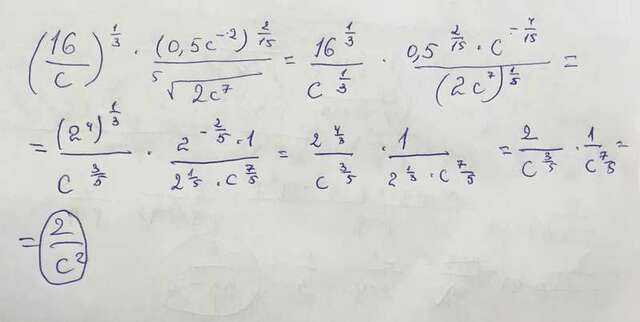 (16/c)^(1/3) · (0,5c^(-2))^(2/15) / ⁵√(2c⁷) = 16^(1/3) / c^(1/3) · 0,5^(2/15) · c^(-4/15) / (2c⁷)^(1/5) =
= (2⁴)^(1/3) / c^(3/5) · 2^(-2/5) · 1 / 2^(1/5) · c^(7/5) = 2^(4/3) / c^(3/5) · 1 / 2^(1/3) · c^(7/5) = 2 / c^(3/5) · 1 / c^(7/5) =
= 2 / c²